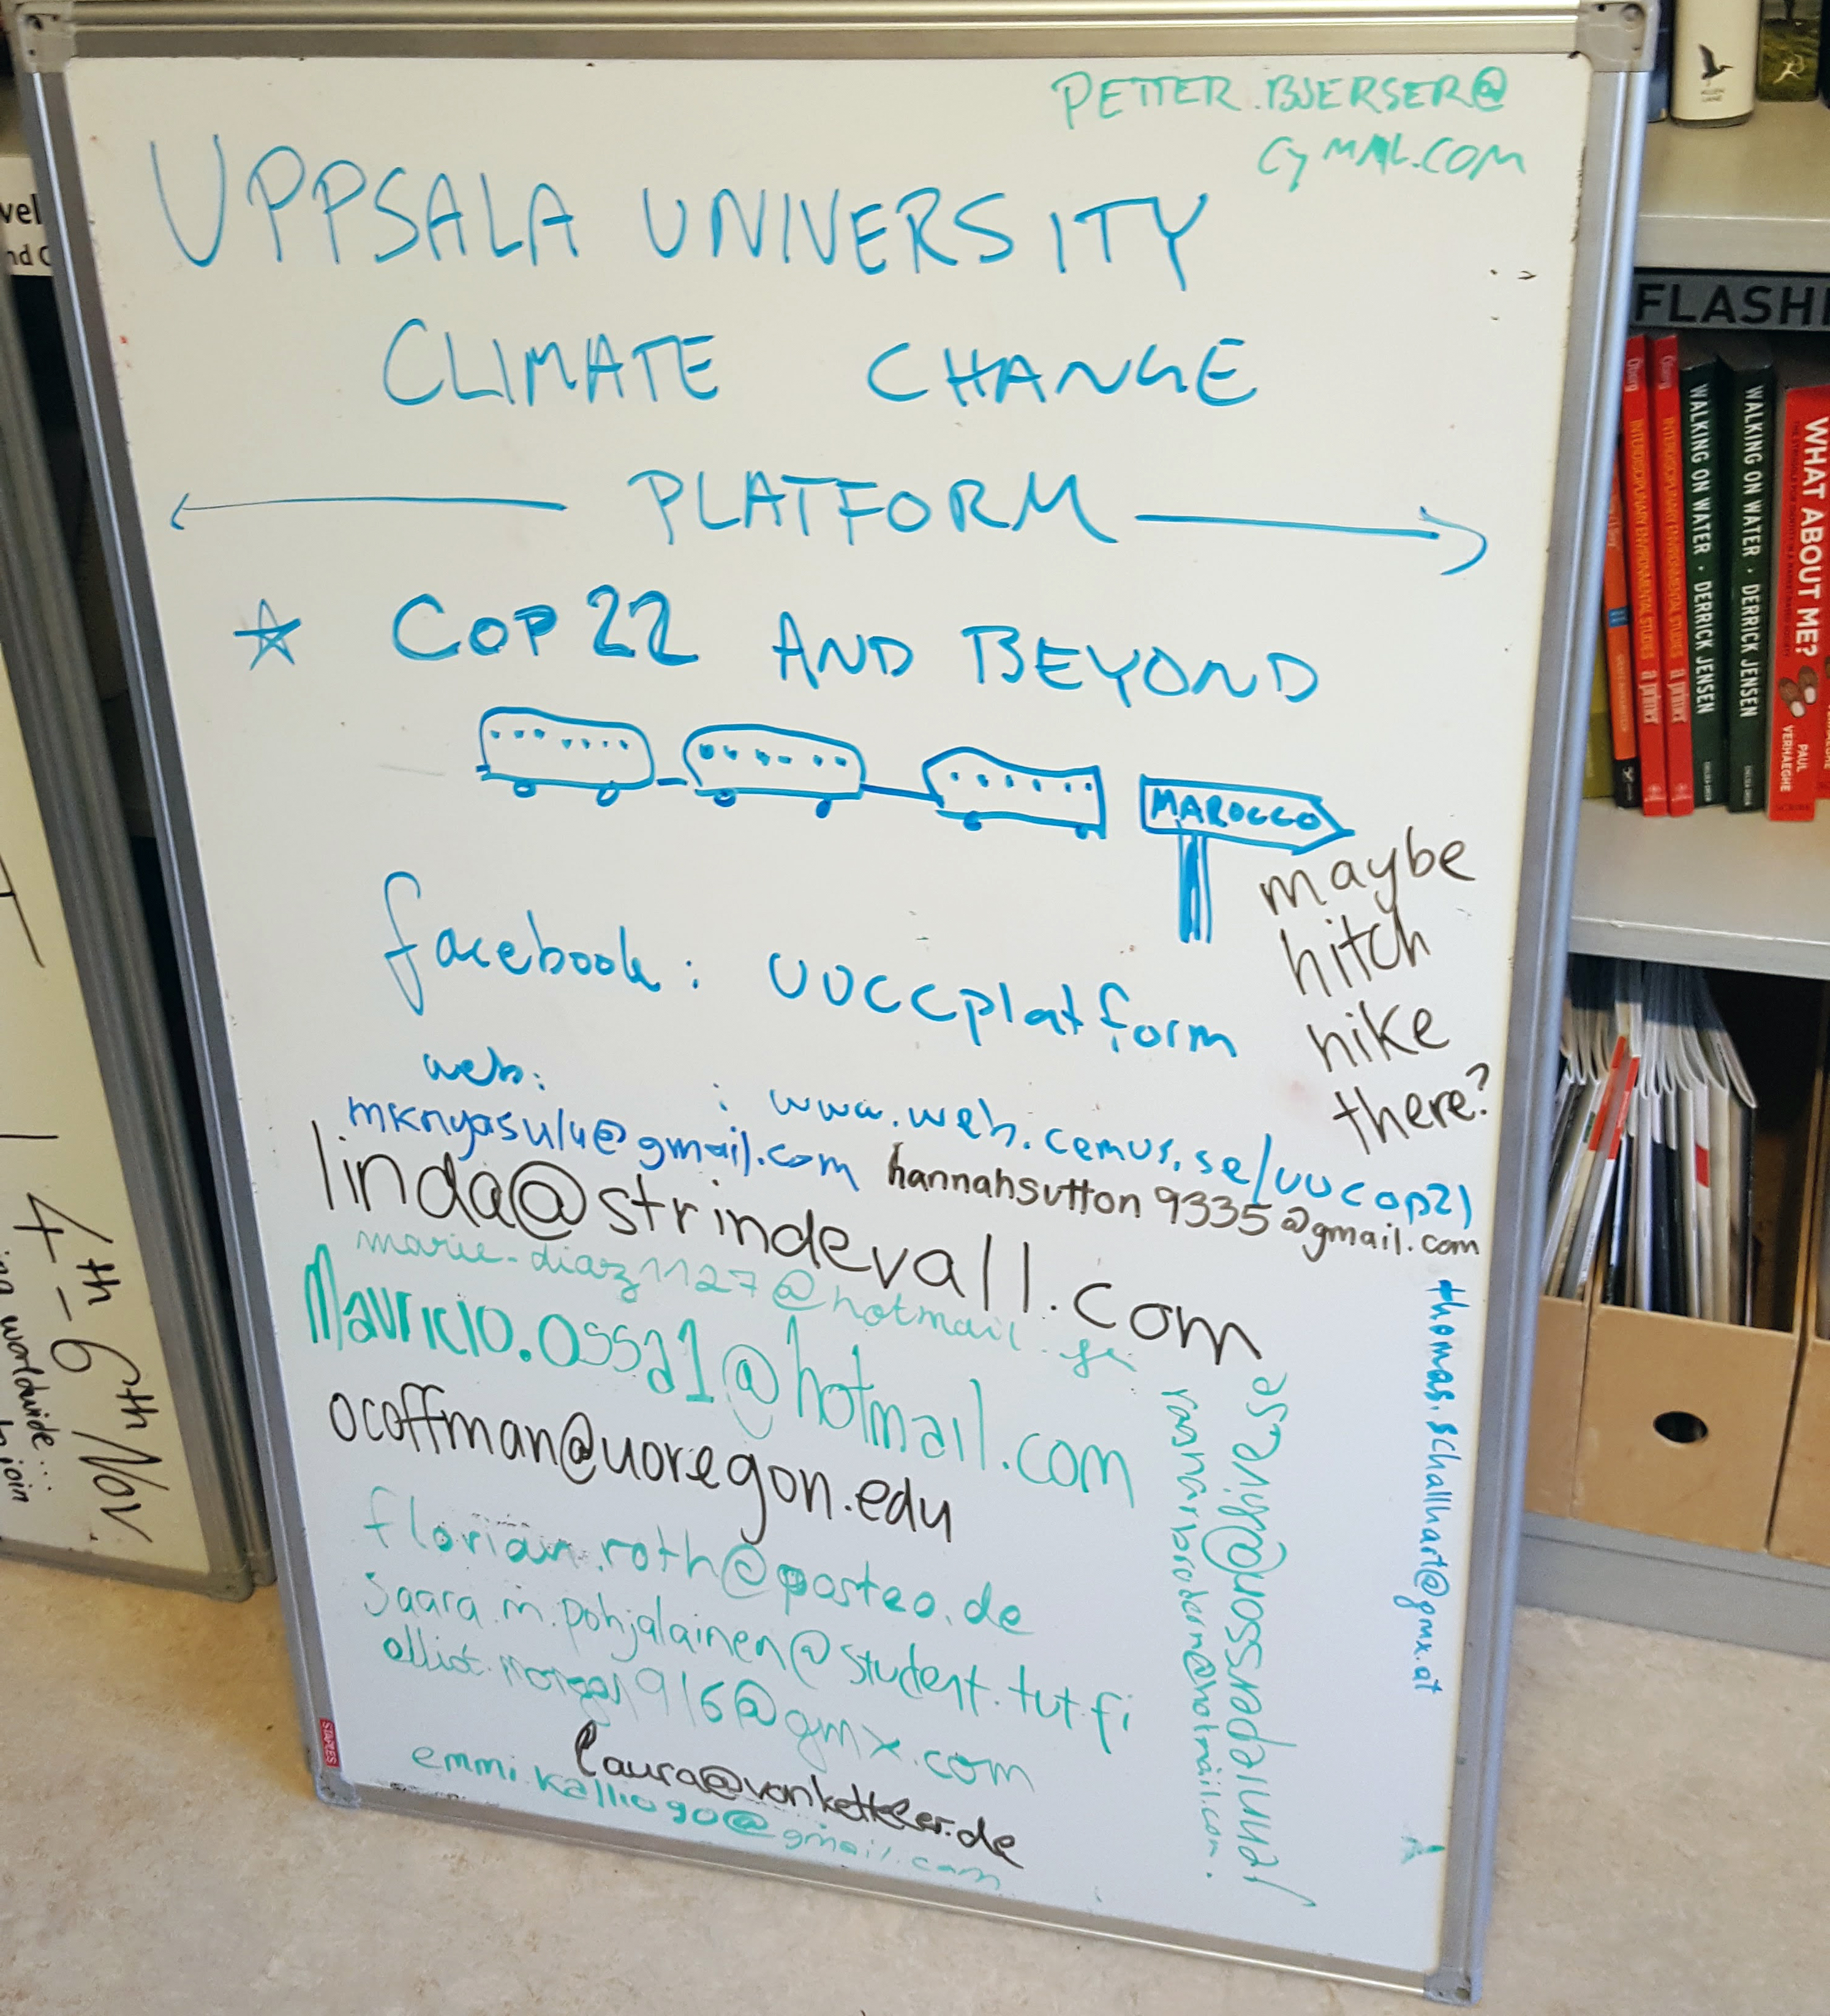 PETTER.BJERSER@
GYMAIL.COM
UPPSALA UNIVERSITY
CLIMATE CHANGE
PLATFORM
COP22 AND BEYOND
MAROCCO
maybe
hitch
hike
there?
facebook: uuccplatform
web: : www.web.cemus.se/uucop21
mknyasulu@gmail.com
hannahsutton9335@gmail.com
linda@strindevall.com
marie-diaz1127@hotmail.fr
Mauricio.ossa1@hotmail.com
ocoffman@uoregon.edu
florian.roth@posteo.de
saara.m.pohjalainen@student.tut.fi
@gmx.com
laura@vonketteler.de
emmi.kallio90@gmail.com
thomas.schallhart@gmx.at
4th - 6th/Nov
worldwide...
join
vel
nd C
FLASH
INTERDISCIPLINARY ENVIRONMENTAL STUDIES a primer
INTERDISCIPLINARY ENVIRONMENTAL STUDIES a primer
WALKING ON WATER · DERRICK JENSEN
WALKING ON WATER · DERRICK JENSEN
WHAT ABOUT ME?
PAUL VERHAEGHE
ALLEN LANE
STAPLES